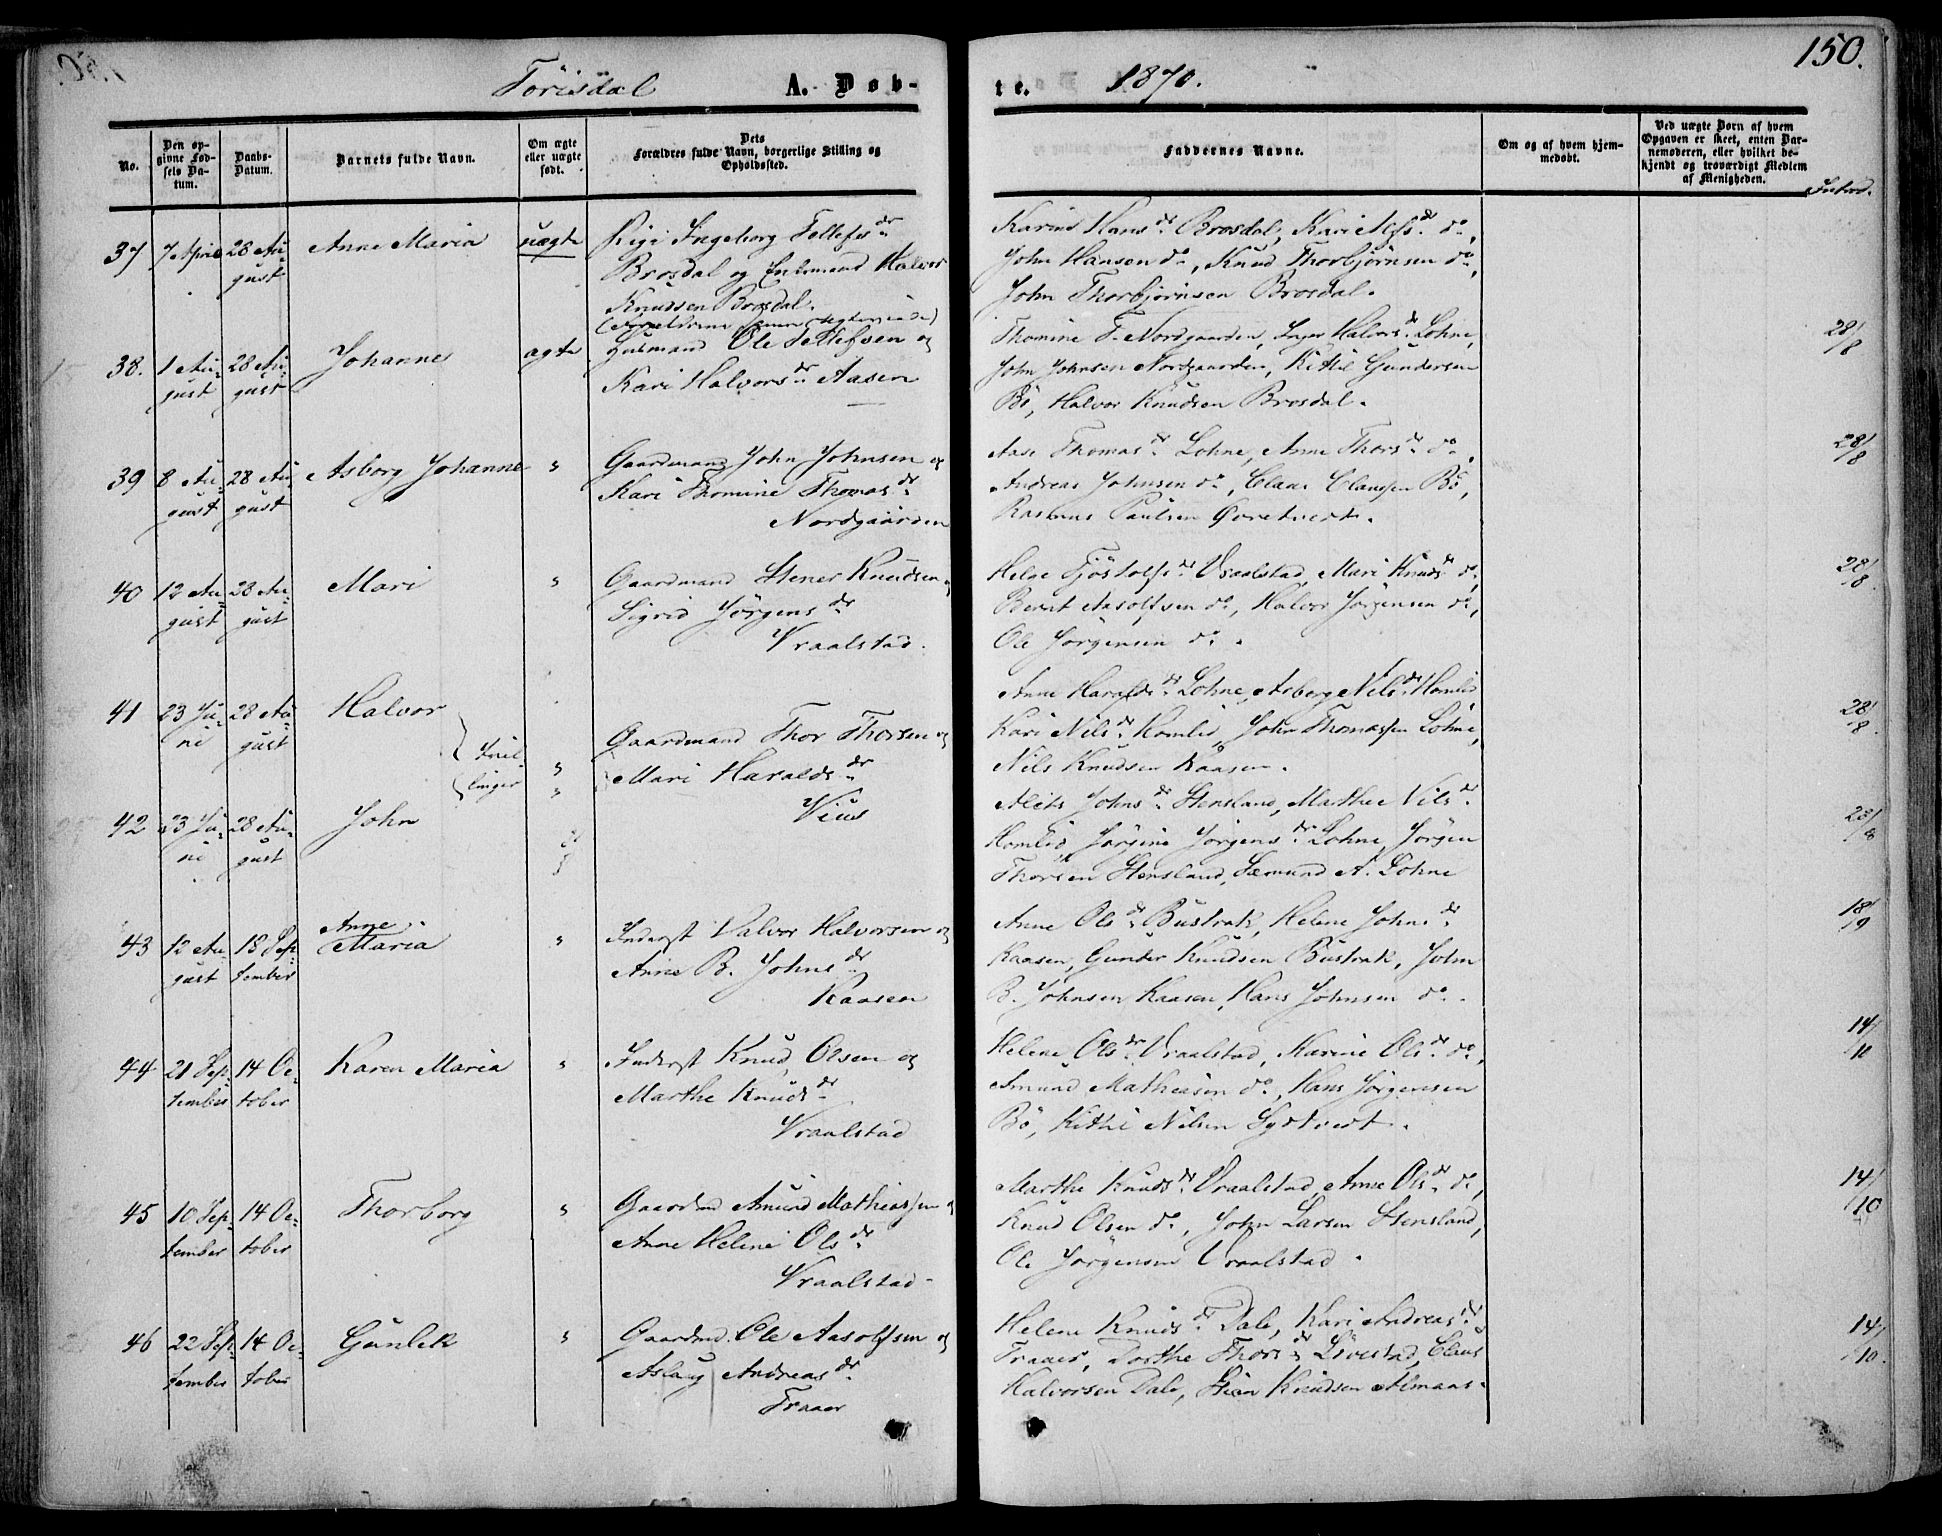 Törisdal A. Døb-
te. 1870. 150.
No.
Den op-
givne Fød-
sels Da-
tum.
Daabs-
Datum.
Barnets fulde Navn.
Om ægte
eller uægte
født.
Dets
Forældres fulde Navn, borgerlige Stilling og
Opholdssted.
Faddernes Navne.
Om og af hvem hjem-
medøbt.
Ved uægte Børn af hvem
Opgaven er skeet, enten Bar-
nemoderen, eller hvilket be-
kjendt og troværdigt Medlem
af Menigheden.
Introd.
37 7 April 28 Au-
gust
Anne Maria
uægte
Pige Ingeborg Tellefsdr
Brosdal og Enkemand Halvor
Knudsen Brosdal.
Karine Hansdr Brosdal, Kari do,
John Hansen do, Knud Thorbjörnsen do,
John Thorbjörnsen Brosdal.
38. 1 Au-
gust
28 Au-
gust
Johanne
ægte
Husmand Ole Tellefsen og
Kari Halvorsdr Aasen
Thomine T. Nordgaarden, Inger Halvorsdr Lohne,
John Johnsen Nordgaarden, Kittil Gundersen
Bö, Halvor Knudsen Brosdal.
28/8
39 8 Au-
gust
28 Au-
gust
Asborg Johanne
"
Gaardmand John Johnsen og
Kari Thomine Thomasdr
Nordgaarden
Aase Thomasdr Lohne, Anne Thorsdr do,
Andreas Johnsen do, Claus Claussen Bö,
Rasmus Paulsen Qvertvedt.
28/8
40 12 Au-
gust
28 Au-
gust
Mari
"
Gaardmand Stener Knudsen og
Sigrid Jörgensdr
Vraalstad.
Helge Tjöstolfsdr Vraalstad, Mari Knudsdr do,
Bernt Aasolfsen do, Halvor Jörgensen do,
Ole Jörgensen do.
28/8
41 23 Ju-
ni
28 Au-
gust
Halvor
Tvil-
linger
"
"
Gaardmand Thor Thorsen og
Mari Haraldsdr
Vius
Anne Haraldsdr Lohne, Asberg Nilsdr Homlid
Kari Nilsdr Homlid, John Thomassen Lohne,
Nils Knudsen Kaasen.
28/8
42 23 Ju-
ni
28 Au-
gust
John
Johnsdr Stensland, Marthe Nilsdr
Homlid Jörgine Jörgensdr Lohne, Jörgen
Thorsen Stensland, Sæmund A. Lohne
28/8
43 12 Au-
gust
18 Sep-
tember
Anne
Maria
"
Inderst Halvor Halvorsen og
Anne B. Johnsdr
Kaasen
Anne Olsdr Bustrak, Helene Johnsdr
Kaasen, Gunder Knudsen Bustrak, John
B. Johnsen Kaasen, Hans Johnsen do.
18/9
44 21 Sep-
tember
14 Oc-
tober
Karen Maria
"
Inderst Knud Olsen og
Marthe Knudsdr
Vraalstad
Helene Olsdr Vraalstad, Karine Olsdr do,
Amund Mathiasen do, Hans Jörgensen
Bö, Kittil Nilsen Sydtvedt.
14/10
45 10 Sep-
tember
14 Oc-
tober
Thorborg
"
Gaardmd Amund Mathiassen og
Anne Helene Olsdr
Vraalstad
Marthe Knudsdr Vraalstad, Anne Olsdr do,
Knud Olsen do, John Larsen Stensland,
Ole Jörgensen Vraalstad.
14/10
46 22 Sep-
tember
14 Oc-
tober
Gunlek
"
Gaardmd. Ole Aasolfsen og
Aslaug Andreasdr
Traaer
Helene Knudsdr Dale, Kari Andreasdr
Traaer, Dorthe Thorsdr Livestad, Claus
Halvorsen Dale, Knudsen Almaas.
14/10.